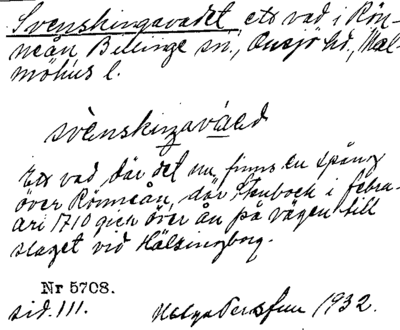 Svenskingavadet ett vad i Rön-
neån Billinge sn., Onsjö hd., Mal-
möhus l.
svènskingavá
Ett vad, där det nu finns en spång
över Rönneån, där Stenbock i febru-
ari 1710 gick över ån på vägen till
slaget vid Hälsingborg.
Nr 5708.
sid. 111.
Helga Persson 1932.